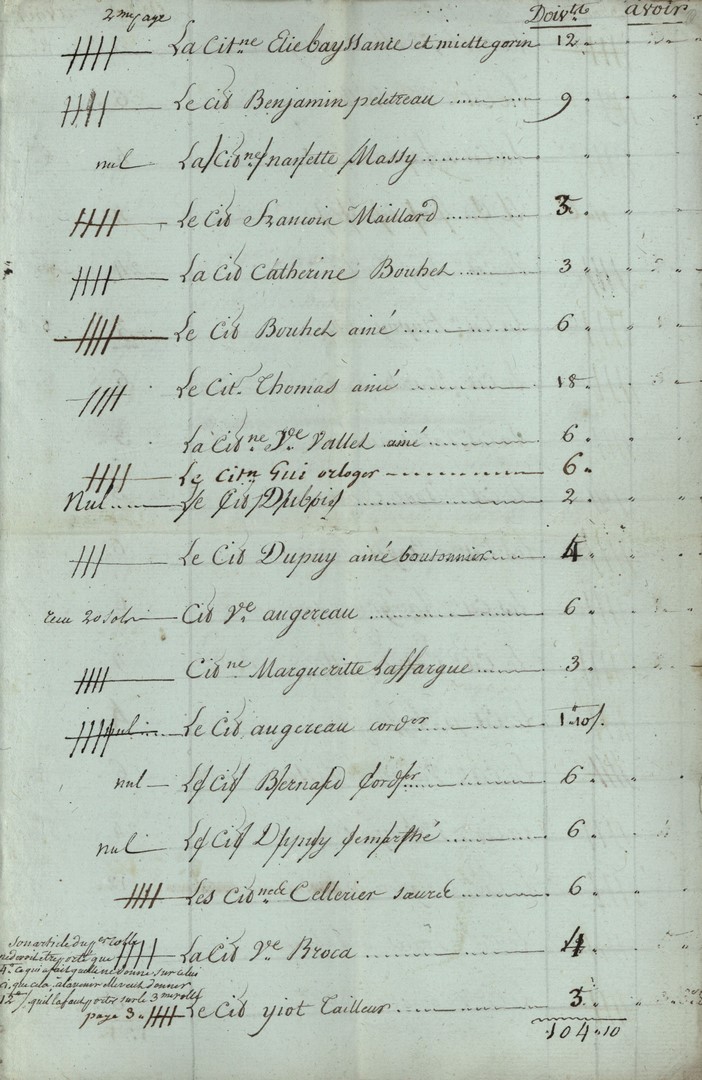 2me page Doivt avoir
La Citne Elie bayssance et miette gorin 12
Le Cit Benjamin peletreau 9
nul La Citne nanette Massy
Le Cit Francois Maillard 3
La Cit Catherine Bouhet 3
Le Cit Bouhet ainé 6
Le Cit. Thomas ainé 18
La Citne Ve Vallet ainé 6
Le Citn Gui orloger 6
Nul Le Cit Dubois 2
Le Cit Dupuy ainé boutonnier 4
recu 20 sols Cit Ve augereau 6
Citne Margueritte Laffargue 3
nul Le Cit augereau corder 1.10s.
nul Le Cit Bernard Corder 6
nul Le Cit Dupuy 6
Les Citnes Cellerier 6
son article du per rolle
La Cit Ve Broca 4
page 3 Le Cit yiot Tailleur 3
104.10